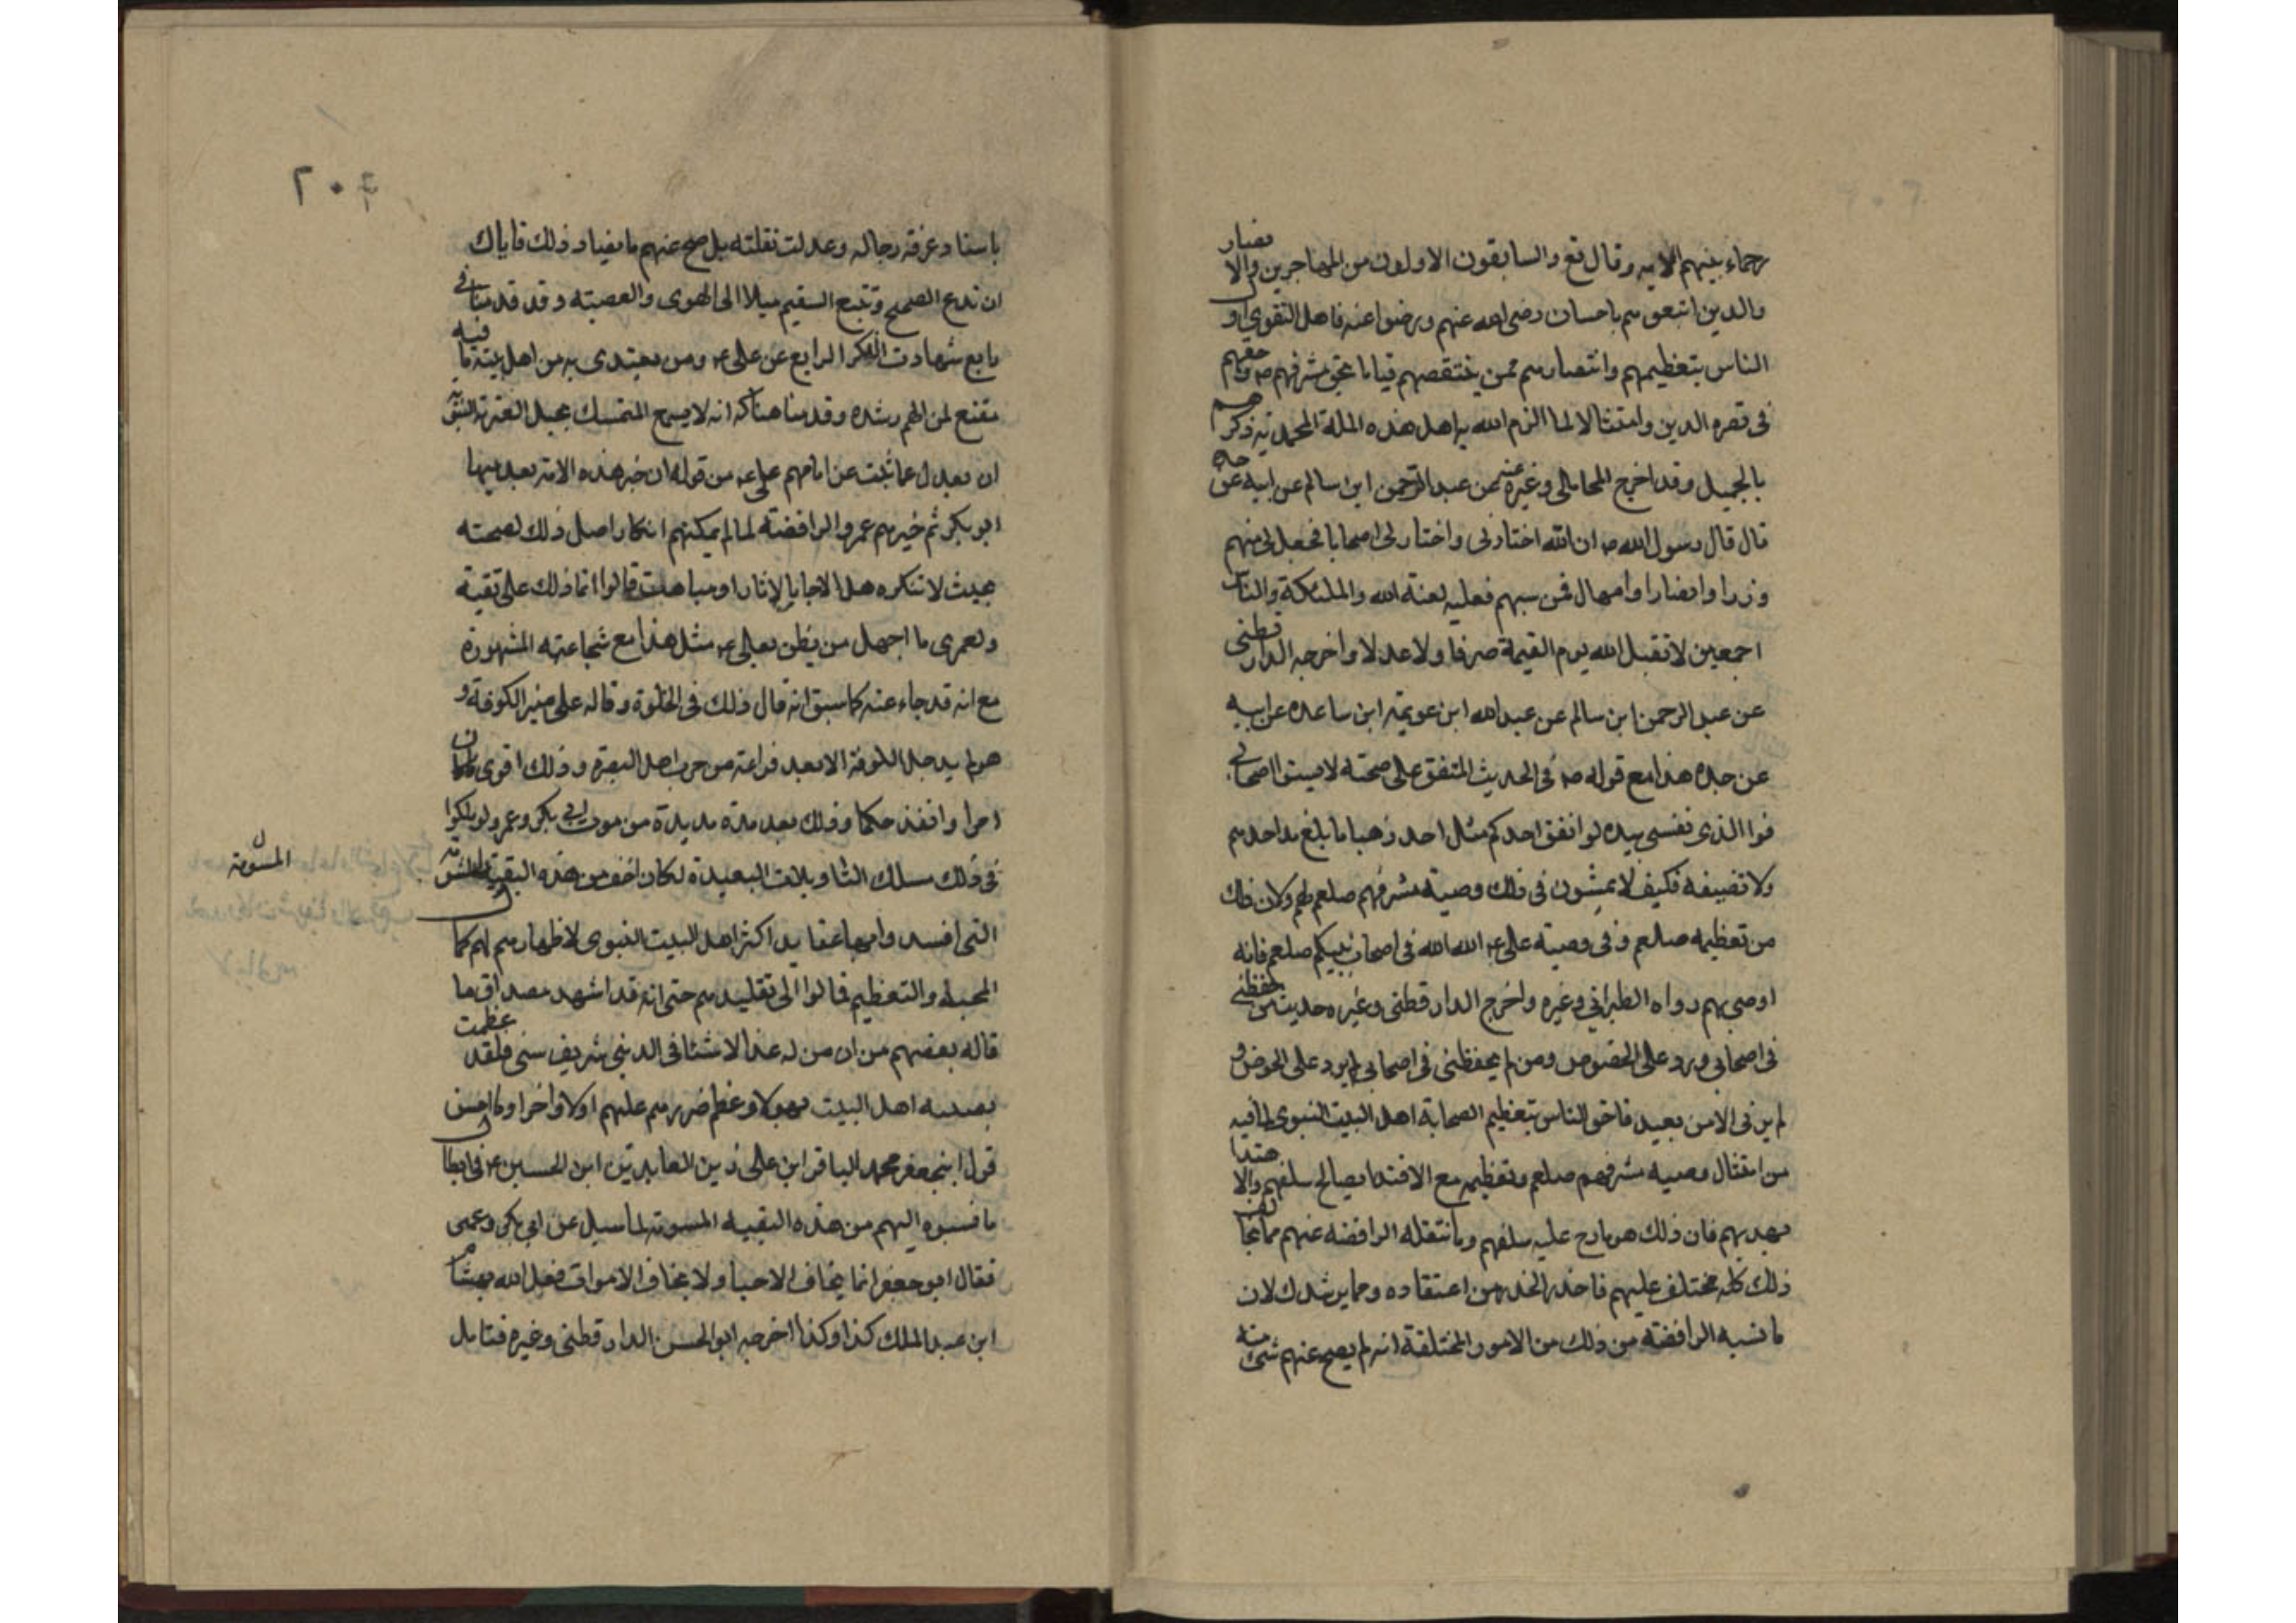 رحماء بينهم الايه وقال تع والسابقون الاولون من المهاجرين والانصار
والذين اتبعوهم باحسان رضى الله عنهم ورضوا عنه فاهل التقوى
الناس بتعظيمهم وانتصارهم ممن ينتقصهم قياما بحق مشرفهم ص وحقهم
فى نصره الدين وامتثالا لما الزم الله به اهل هذه الملة المحمدية ذكرهم
بالجميل وقد اخرج المحاملى وغيره عن عبد الرحمن ابن سالم عن ابيه عن جده
قال قال رسول الله ص ان الله اختارنى واختار لى اصحابا فجعل لى منهم
وزرا وانصارا واصهارا فمن سبهم فعليه لعنة الله والملئكة والناس
اجمعين لا تقبل الله يوم القيمة صرفا ولا عدلا واخرجه الدار قطنى
عن عبد الرحمن ابن سالم عن عبد الله ابن عويمة ابن ساعده عن ابيه
عن جده هذا مع قوله ص فى الحديث المتفق على صحته لا تسبوا اصحابى
فوا الذى نفسى بيده لو انفق احدكم مثل احد ذهبا ما بلغ مد احدهم
ولا نصيفه فكيف لا يمشون فى ذلك وصية مشرفهم صلعم لهم ولان ذلك
من تعظيمه صلعم وفى وصية على ع الله الله فى اصحاب نبيكم صلعم فانه
اوصى بهم رواه الطبرانى وغيره واخرج الدار قطنى وغيره حديث من حفظنى
فى اصحابى ورد على الحوض ومن لم يحفظنى فى اصحابى لم يرد على الحوض و
لم يرنى الا من بعيد فاحق الناس بتعظيم الصحابة اهل البيت النبوى لما فيه
من امتثال وصيه مشرفهم صلعم وتعظيمه مع الاقتدا بصالح سلفهم والاهتدا
بهديهم فان ذلك هو ما درج عليه سلفهم وما تنقله الرافضه عنهم مما يخالف
ذلك كله مختلق عليهم فاحذر الحذر من اعتقاده وممايرشدك لان
ما نسبه الرافضة من ذلك من الامور المختلقة انه لم يصح عنهم شئ منه
٢٠٦
باسناد عرفت رجاله وعدلت نقلته بل صح عنهم ما يضاد ذلك فاياك
ان تدع الصحيح وتتبع السقيم ميلا الى الهوى والعصبته وقد قدمنا فى
رابع شهادت الذكر الرابع عن على ع ومن يقتدى به من اهل بيته ما فيه
مقنع لمن الهم رشده وقدمنا هناك انه لا يسع المتمسك بحبل العترة النبوية
ان يعدل عما ثبت عن امامهم على ع من قوله ان خير هذه الامة بعد نبيها
ابو بكر ثم خيرهم عمر والرافضة لما لم يمكنهم انكار اصل ذلك لصحته
بحيث لا تنكره قالوا انما ذلك على تقية
ولعمرى ما اجهل من يظن بعلى ع مثل هذا مع شجاعته المشهورة
مع انه قد جاء عنه كما سبق انه قال ذلك فى الخلوة وقاله على منبر الكوفة و
هو لم يدخل الكوفة الا بعد فراغه من حرب اهل البصرة وذلك اقوى ما كان
امرا وانفذ حكما وذلك بعد مدة مديدة من موت ابى بكر وعمر ولو سلكوا
فى ذلك مسلك التاويلات البعيدة لكان اخف من هذه التقية المشؤمة
المشومة
التى افسدوا بها عقايد اكثر اهل البيت النبوى لاظهارهم لهم كمال
المحبه والتعظيم فمالوا الى تقليدهم حتى انه قد اشهد مصداق ما
قاله بعضهم من ان من الاشيا فى الدنيا شريف سنى فلقد عظمت
مصيبه اهل البيت بهولا وعظم ضررهم عليهم اولا واخرا وما احسن
قول ابى جعفر محمد الباقر ابن على زين العابدين ابن الحسين ع فى ابطال
ما نسبوه اليهم من هذه التقيه المسومه لما سيل عن ابى بكر وعمر
فقال ابو جعفر انما يخاف الاحيا ولا يخاف الاموات فعل الله بهشام
ابن عبد الملك كذا وكذا اخرجه ابو الحسن الدار قطنى وغيره فتامل